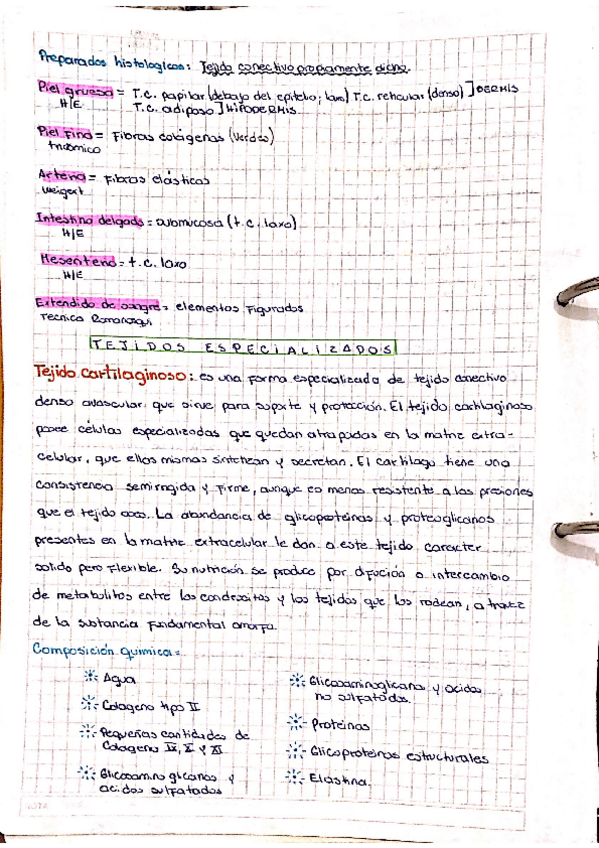 Preparados histologicos: Tejido conectivo propiamente dicho.
Piel gruesa = T.C. papilar (debajo del epitelio; laxo) T.C. reticular (denso) ] DERMIS
H/E T.C. adiposo ] HIPODERMIS
Piel Fina = Fibras colágenas (verdes)
tricromico
Arteria = Fibras elásticas
Weigert
Intestino delgado = submucosa (t.c. laxo)
H/E
Mesenterio = t.c. laxo
H/E
Extendido de sangre = elementos Figurados
Tecnica Romanowsqi
TEJIDOS ESPECIALIZADOS
Tejido Cartilaginoso: es una forma especializada de tejido conectivo
denso avascular, que sirve para soporte y protección. El tejido cartilaginoso
posee células especializadas que quedan atrapadas en la matriz extra-
celular, que ellas mismas sintetizan y secretan. El cartilago tiene una
consistencia semirrigida y firme, aunque es menos resistente a las presiones
que el tejido oseo. La abundancia de glicoproteinas y proteoglicanos
presentes en la matriz extracelular le dan a este tejido caracter
solido pero flexible. Su nutrición se produce por difución o intercambio
de metabolitos entre los condrocitos y los tejidos que los rodean, a travez
de la sustancia fundamental amorfa.
Composición quimica =
Agua
Colageno tipo II
Pequeñas cantidades de
Colageno IX, X y XI
Glicosaminoglicanos y
acidos sulfatados
Glicosaminoglicano y acidos
no sulfatados.
Proteinas
Glicoproteinas estructurales
Elastina.